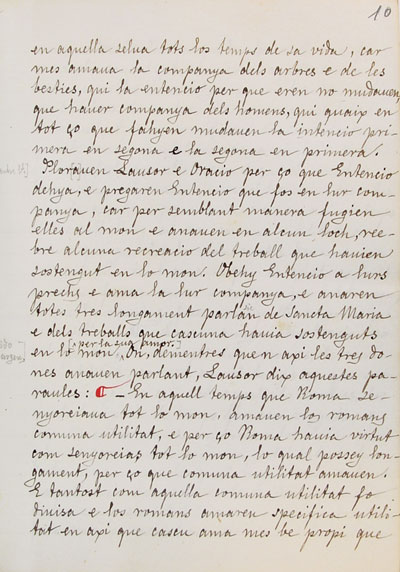 10
en aquella selua tots los temps de sa vida, car
mes amaua la companya dels arbres e de les
besties, qui la entencio per que eren no mudauen,
que hauer companya dels homens, qui quaix en
tot ço que fahyen mudauen la intencio pri-
mera en segona e la segona en primera.
Plorauen Lausor e Oracio per ço que Entencio
dehya, e pregaren Entencio que fos en lur com-
panya, car per semblant manera fugien
elles al mon e anauen en alcun loch, ree-
bre alcuna recreacio del treball que hauien
sostengut en lo mon. Obehy Entencio a lurs
prechs e ama la lur companya, e anaren
totes tres longament parlan de Sancta Maria
e dels treballs que cascuna hauia sostenguts
[per la sua amor.]
en lo mon. On, dementres que n axi les tres do-
nes anauen parlant, Lausor dix aquestes pa-
raules: ¶ — En aquell temps que Roma se-
nyoreiaua tot lo mon, amauen los romans
comuna utilitat, e per ço Roma hauia virtut
com senyoreias tot lo mon, lo qual possey lon-
gament, per ço que comuna utilitat amauen.
E tantost com aquella comuna utilitat fo
diuisa e los romans amaren specifica utili-
tat en axi que cascu ama mes be propi que